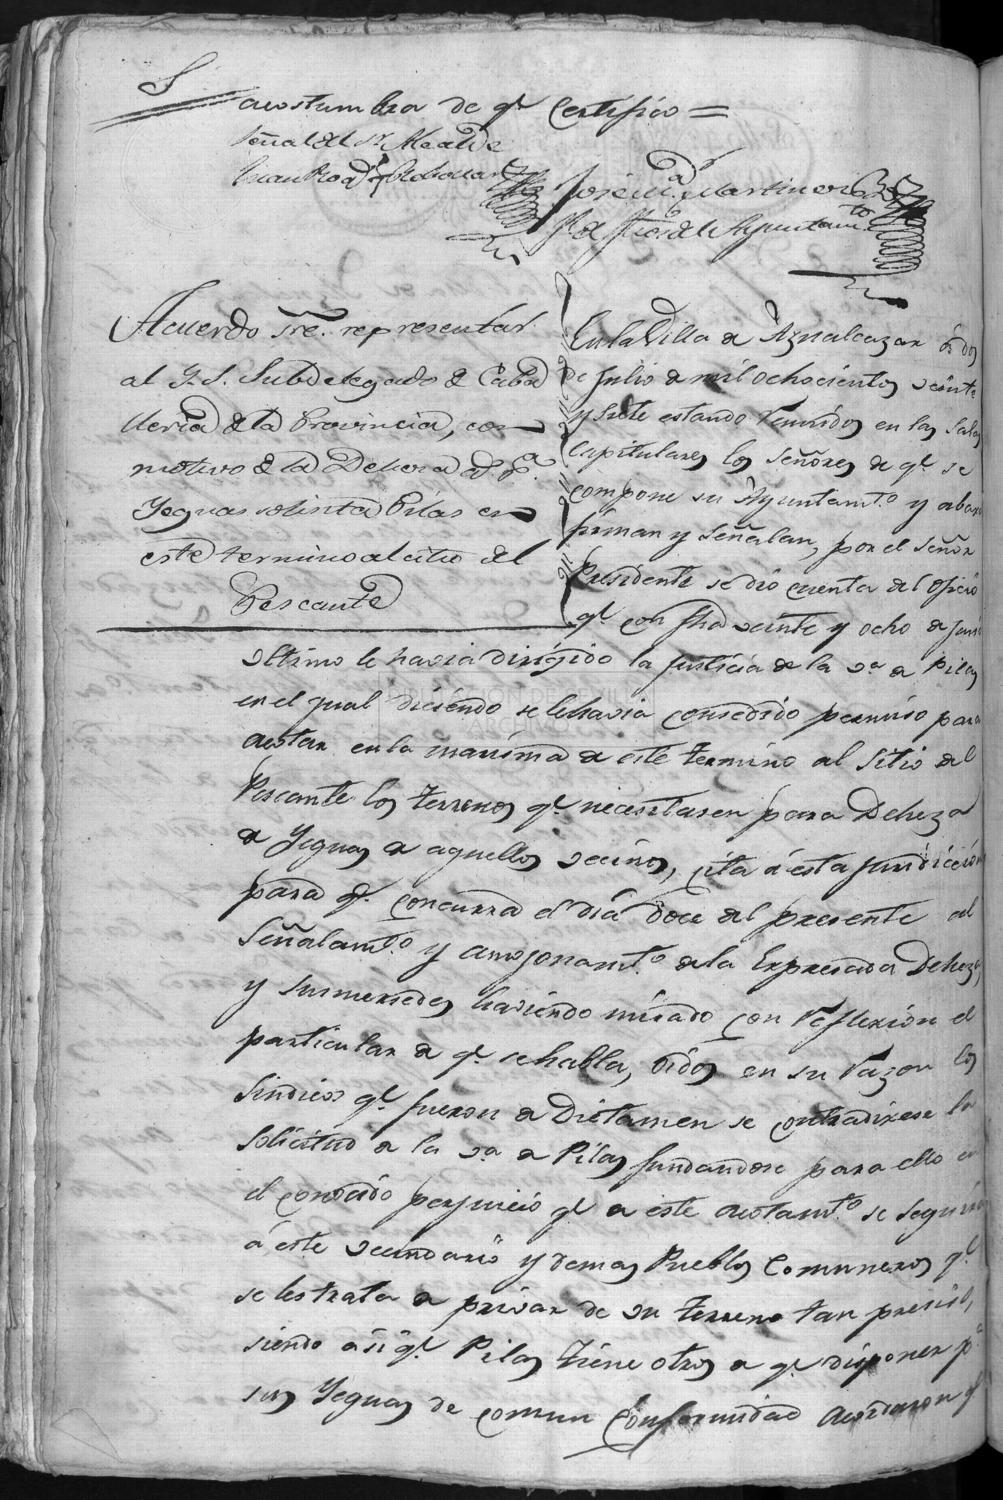 acostumbra de qe. Certifico =
Señal del Sr. Alcalde
José Ma. Martinez
Sº. de Ayuntamto
Acuerdo sre. representar
al Y. S. Subdelegado de Caba
lleria de la Provincia, con
motivo de la Dehesa de pa.
Yeguas solicita Pilas en
este termino al citio del
Pescante
En la Villa de Aznalcazar à dos
de Julio de mil ochocientos veinte
y siete estando reunidos en las Salas
Capitulares los Señores de qe. se
compone su Ayuntamto. y abaxo
firman y señalan, por el Señor
Presidente se dió cuenta del Oficio
qe. con fha veinte y ocho de Junio
ultimo le havia dirigido la Justicia de la va. de Pilas
en el qual diciendo se le havia consedido permiso para
acotar en la marisma de este termino al Sitio del
Pescante los terrenos qe. necesitasen para Deheza
de Yeguas de aquellos vecinos, cita à esta Jurisdiccion
para qe. concurra el dia doce del presente al
Señalamto. y amojonamto. de la Expresada Deheza,
y sus mercedes haviendo mirado con reflexion el
particular de qe. se habla, oidos en su razon los
Sindicos qe. fueron de Dictamen se contradixese la
solicitud de la va. de Pilas fundandose para ello en
el conocido perjuicio qe. de este acotamto. se seguiria
à este vecindario y demas Pueblos Comuneros qe.
se les trata de privar de un terreno tan preciso,
siendo asi qe. Pilas tiene otros de qe. disponer pa.
sus Yeguas de comun Conformidad acordaron qe
DIPUTACIÓN DE SEVILLA
ARCHIVO